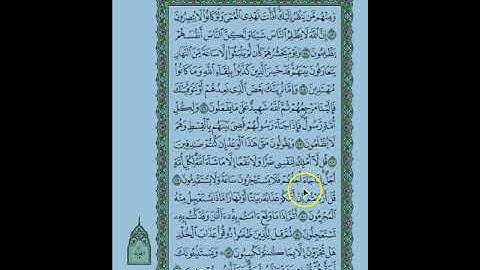 وَمِنْهُم مَّن يَنظُرُ إِلَيْكَ أَفَأَنتَ تَهْدِى ٱلْعُمْىَ وَلَوْ كَانُوا۟ لَا يُبْصِرُونَ
٤٣ إِنَّ ٱللَّهَ لَا يَظْلِمُ ٱلنَّاسَ شَيْـًٔا وَلَـٰكِنَّ ٱلنَّاسَ أَنفُسَهُمْ
يَظْلِمُونَ ٤٤ وَيَوْمَ يَحْشُرُهُمْ كَأَن لَّمْ يَلْبَثُوٓا۟ إِلَّا سَاعَةً مِّنَ ٱلنَّهَارِ
يَتَعَارَفُونَ بَيْنَهُمْ قَدْ خَسِرَ ٱلَّذِينَ كَذَّبُوا۟ بِلِقَآءِ ٱللَّهِ وَمَا كَانُوا۟
مُهْتَدِينَ ٤٥ وَإِمَّا نُرِيَنَّكَ بَعْضَ ٱلَّذِى نَعِدُهُمْ أَوْ نَتَوَفَّيَنَّكَ
فَإِلَيْنَا مَرْجِعُهُمْ ثُمَّ ٱللَّهُ شَهِيدٌ عَلَىٰ مَا يَفْعَلُونَ ٤٦ وَلِكُلِّ
أُمَّةٍ رَّسُولٌ فَإِذَا جَآءَ رَسُولُهُمْ قُضِىَ بَيْنَهُم بِٱلْقِسْطِ وَهُمْ
لَا يُظْلَمُونَ ٤٧ وَيَقُولُونَ مَتَىٰ هَـٰذَا ٱلْوَعْدُ إِن كُنتُمْ صَـٰدِقِينَ
٤٨ قُل لَّآ أَمْلِكُ لِنَفْسِى ضَرًّا وَلَا نَفْعًا إِلَّا مَا شَآءَ ٱللَّهُ لِكُلِّ أُمَّةٍ
أَجَلٌ إِذَا جَآءَ أَجَلُهُمْ فَلَا يَسْتَـْٔخِرُونَ سَاعَةً وَلَا يَسْتَقْدِمُونَ ٤٩
قُلْ أَرَءَيْتُمْ إِنْ أَتَىٰكُمْ عَذَابُهُۥ بَيَـٰتًا أَوْ نَهَارًا مَّاذَا يَسْتَعْجِلُ مِنْهُ
ٱلْمُجْرِمُونَ ٥٠ أَثُمَّ إِذَا مَا وَقَعَ ءَامَنتُم بِهِۦٓ ءَآلْـَٔـٰنَ وَقَدْ كُنتُم بِهِۦ
تَسْتَعْجِلُونَ ٥١ ثُمَّ قِيلَ لِلَّذِينَ ظَلَمُوا۟ ذُوقُوا۟ عَذَابَ ٱلْخُلْدِ
هَلْ تُجْزَوْنَ إِلَّا بِمَا كُنتُمْ تَكْسِبُونَ ٥٢ وَيَسْتَنۢبِـُٔونَكَ